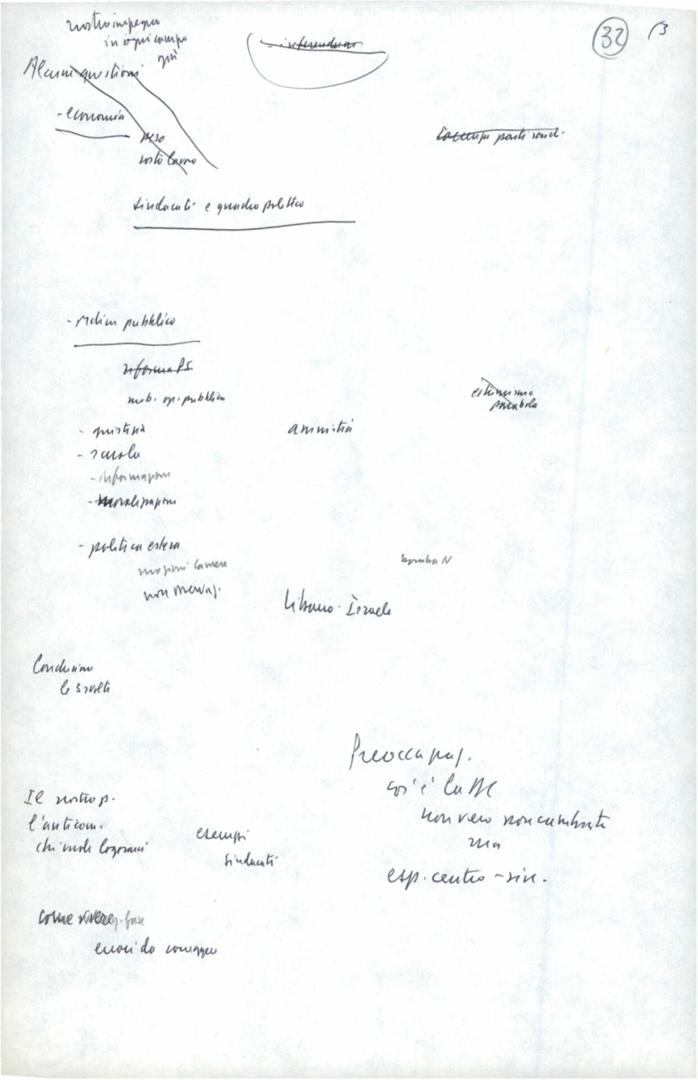 nostro impegno
in ogni campo
già
32
13
Alcune questioni
referendum
- economia
peso
costo lavoro
parte
sindacati e quadro politico
- ordine pubblico
riforma PS
mob. op. pubblica
estremismo
parabola
- giustizia
amnistia
- scuola
- informazione
- moralizzazione
- politica estera
mozioni Camere
bomba N
non
Libano - Israele
Conclusione
le 3 scelte
Preoccupaz.
cos'è la DC
non vero non cambiata
ma
esp. centro-sin.
Il nostro p.
l'anticom.
chi vuole logorarci
esempi
sindacati
come vivere q. fase